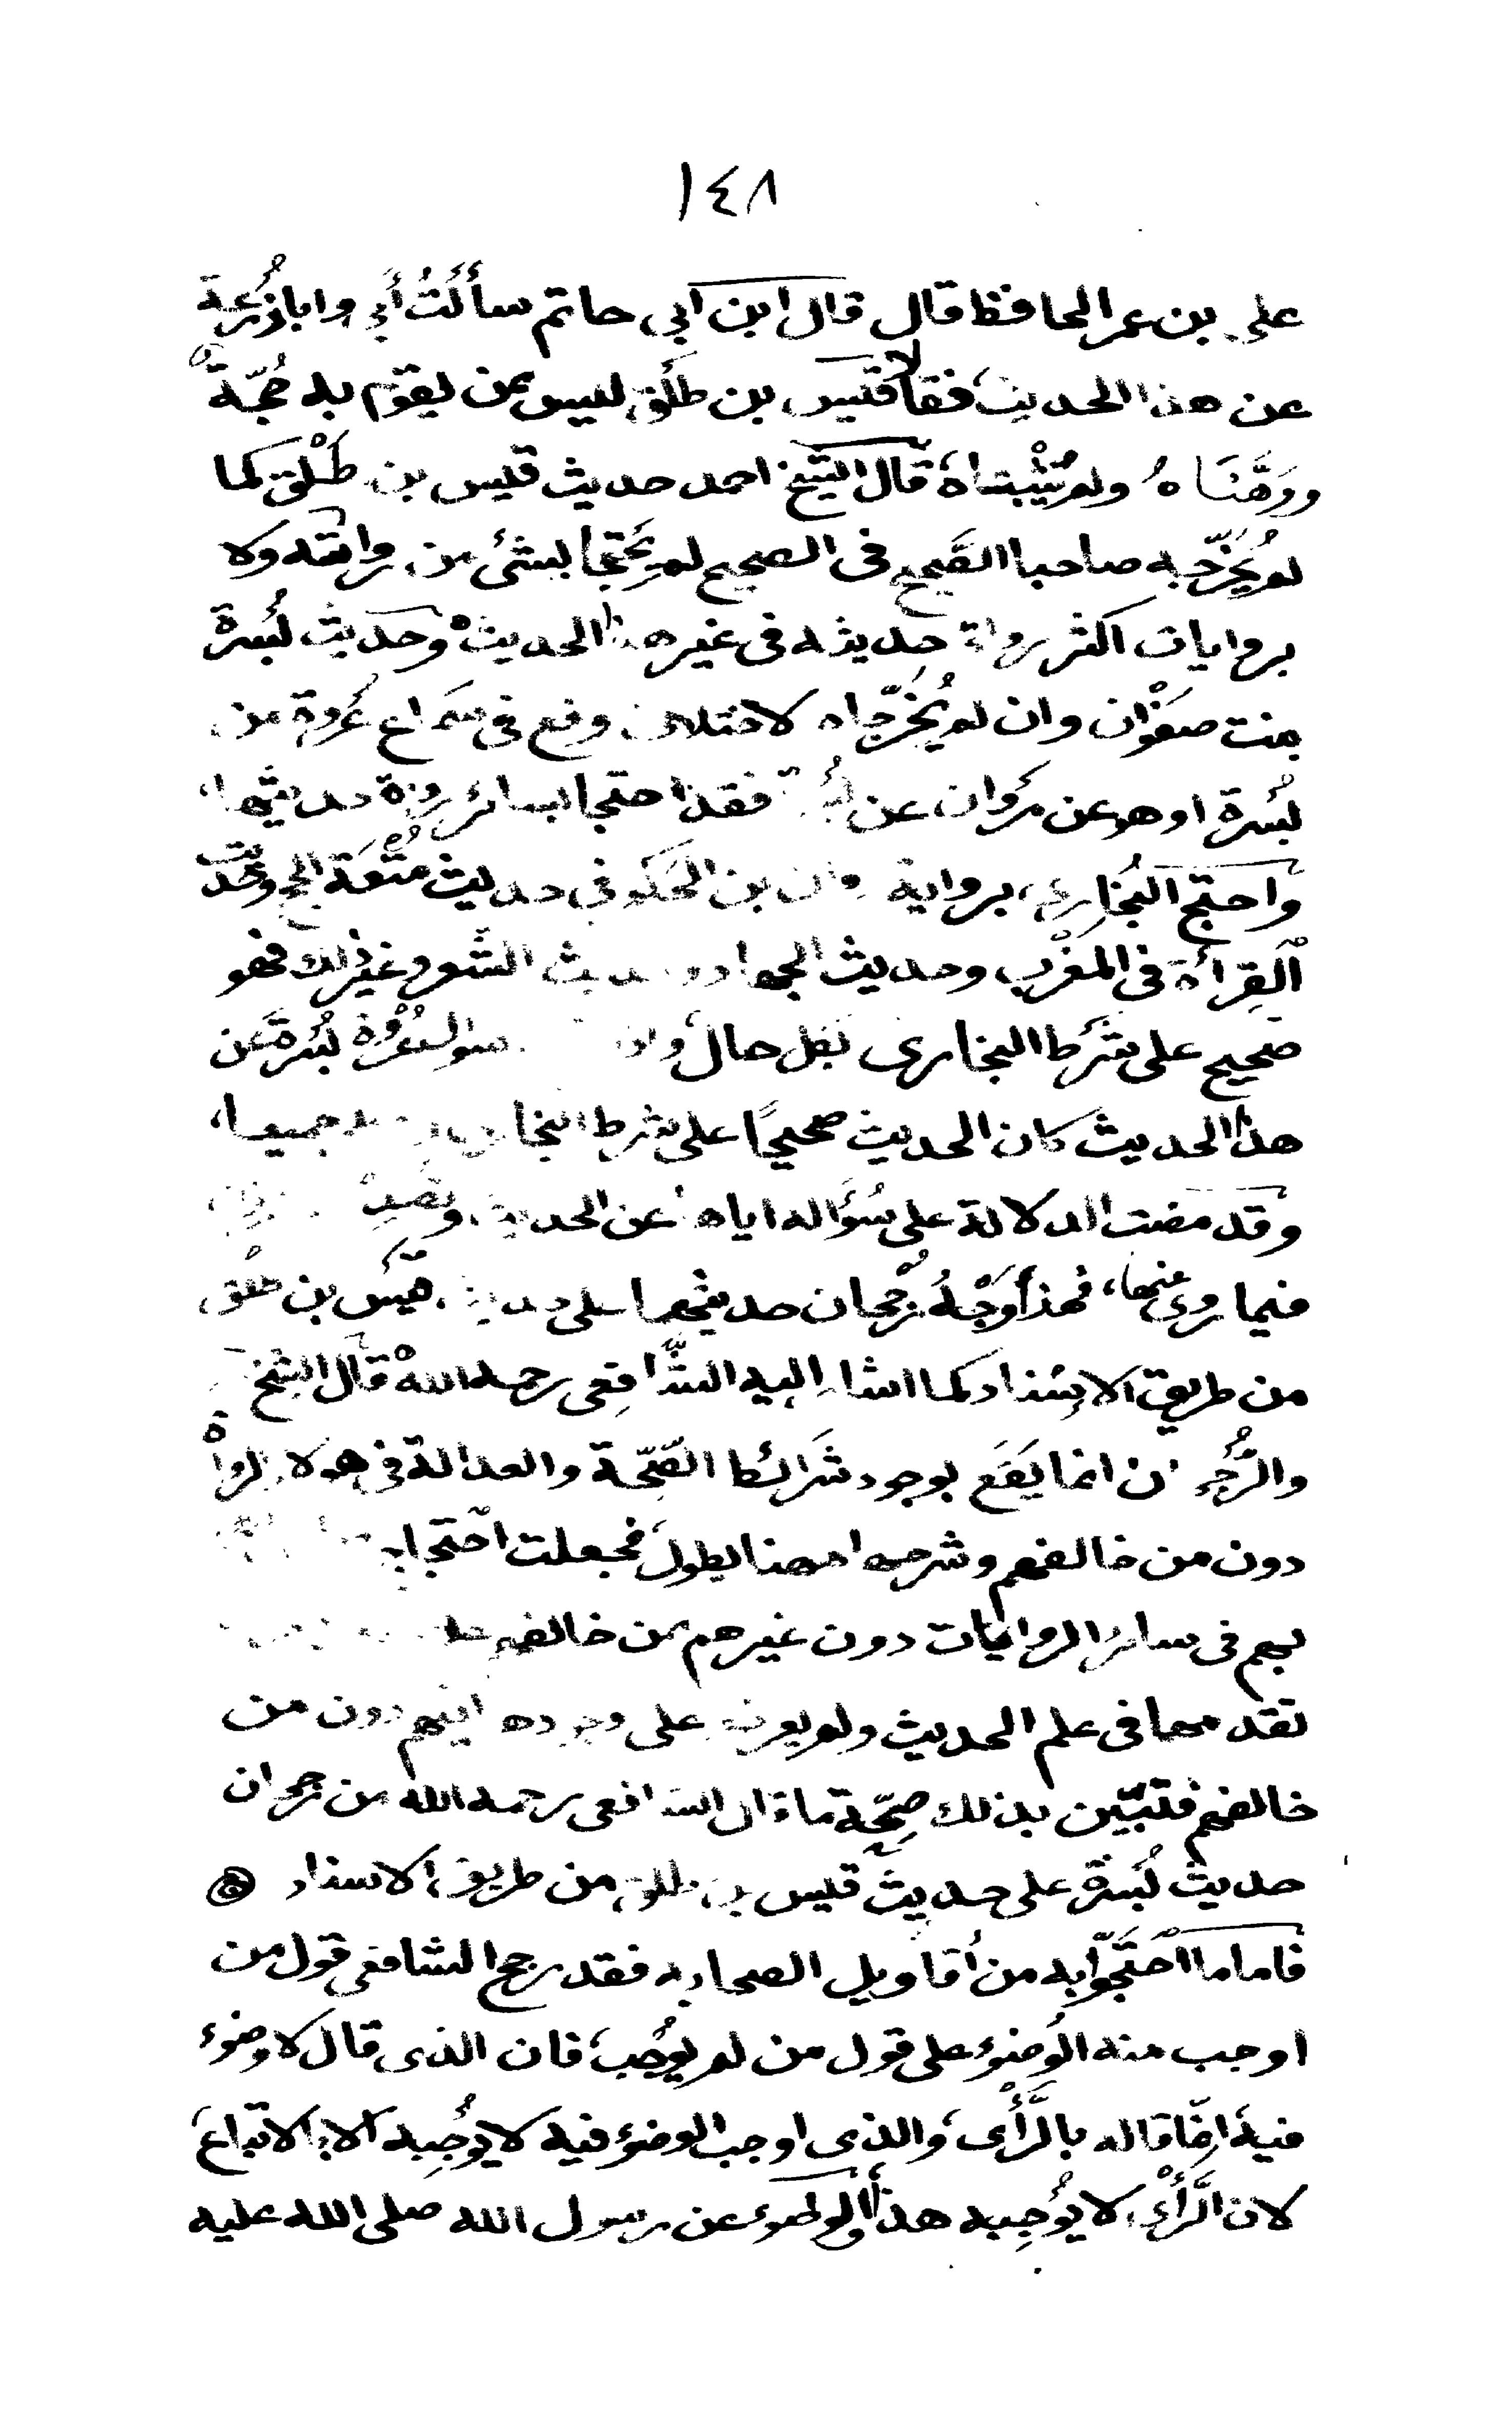 ١٤٨
على بن عمر الحافظ قال قال ابن ابي حاتم سألتُ أبي وابا زُرعة
عن هذا الحديث فقالا قيس بن طلق ليس ممن يقوم به حُجّة
ووَهَّنَاهُ ولم يُثْبِتاه قال الشيخ احمد حديث قيس بن طَلْق كما
لم يُخَرّجه صاحبا الصَّحيح في الصحيح لم يَحْتَجّا بشئ من رواياته ولا
بروايات اكثر رواة حديثه في غير هذا الحديث وحديث بُسرة
بنت صَفْوَان وان لم يُخَرّجاه لاختلاف وقع في سَماع عُروة من
بُسرة او هو عن مَروان عن بُسرة فقد احتجا بسائر رواة حديثها
واحتج البُخاري برواية مروان بن الحَكَم في حديث مُتْعَة الحج وحديث
القِراءة في المَغْرب وحديث الجهاد وحديث الشعر وغير ذلك فهو
صَحيح على شَرط البخاري بكل حال سوال عُرْوة بُسرة عن
هذا الحديث كان الحديث صحيحًا على شرط البخاري جميعا
وقد مضت الدلالة على سُؤاله اياها عن الحديث
فيما روى عنها، فهذا وَجْهُ رُجْحان حديثها على حديث قيس بن طلق
من طريق الاسناد كما اشار اليه الشَّافِعي رحمه الله قال الشيخ
والرُّجحان انما يَقَع بوجود شَرائط الصّحّة والعدالة في هولاء الرواة
دون من خالفهم وشرحه هاهنا يطول فجعلت احتجاج
بهم في سائر الروايات دون غيرهم ممن خالفهم
تقدمهما في علم الحديث ولم يعرف على وجوده فيهم دون من
خالفهم فتبيّن بذلك صِحّة ما قال الشافعي رحمه الله من رجحان
حديث بُسْرة على حديث قيس بن طلق من طريق الاسناد
فاما ما احْتَجّوا به من أقاويل الصحابة فقد رجح الشافعي قول من
اوجب منه الوُضوء على قول من لم يُوجب، فان الذى قال لا وضوء
فيه انمّا قاله بالرَّأْى، والذى اوجب الوضوء فيه لا يُوجِبه الا بالاتباع
لان الرَّأْى لا يُوجِبه هذا عن رسول الله صلى الله عليه